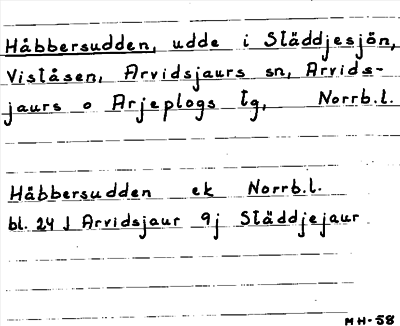 Håbbersudden, udde i Städdjesjön,
Viståsen, Arvidsjaurs sn, Arvids-
jaurs o Arjeplogs tg, Norrb.l.
Håbbersudden ek Norrb.l.
bl. 24 J Arvidsjaur 9j Städdjejaur
MH-58